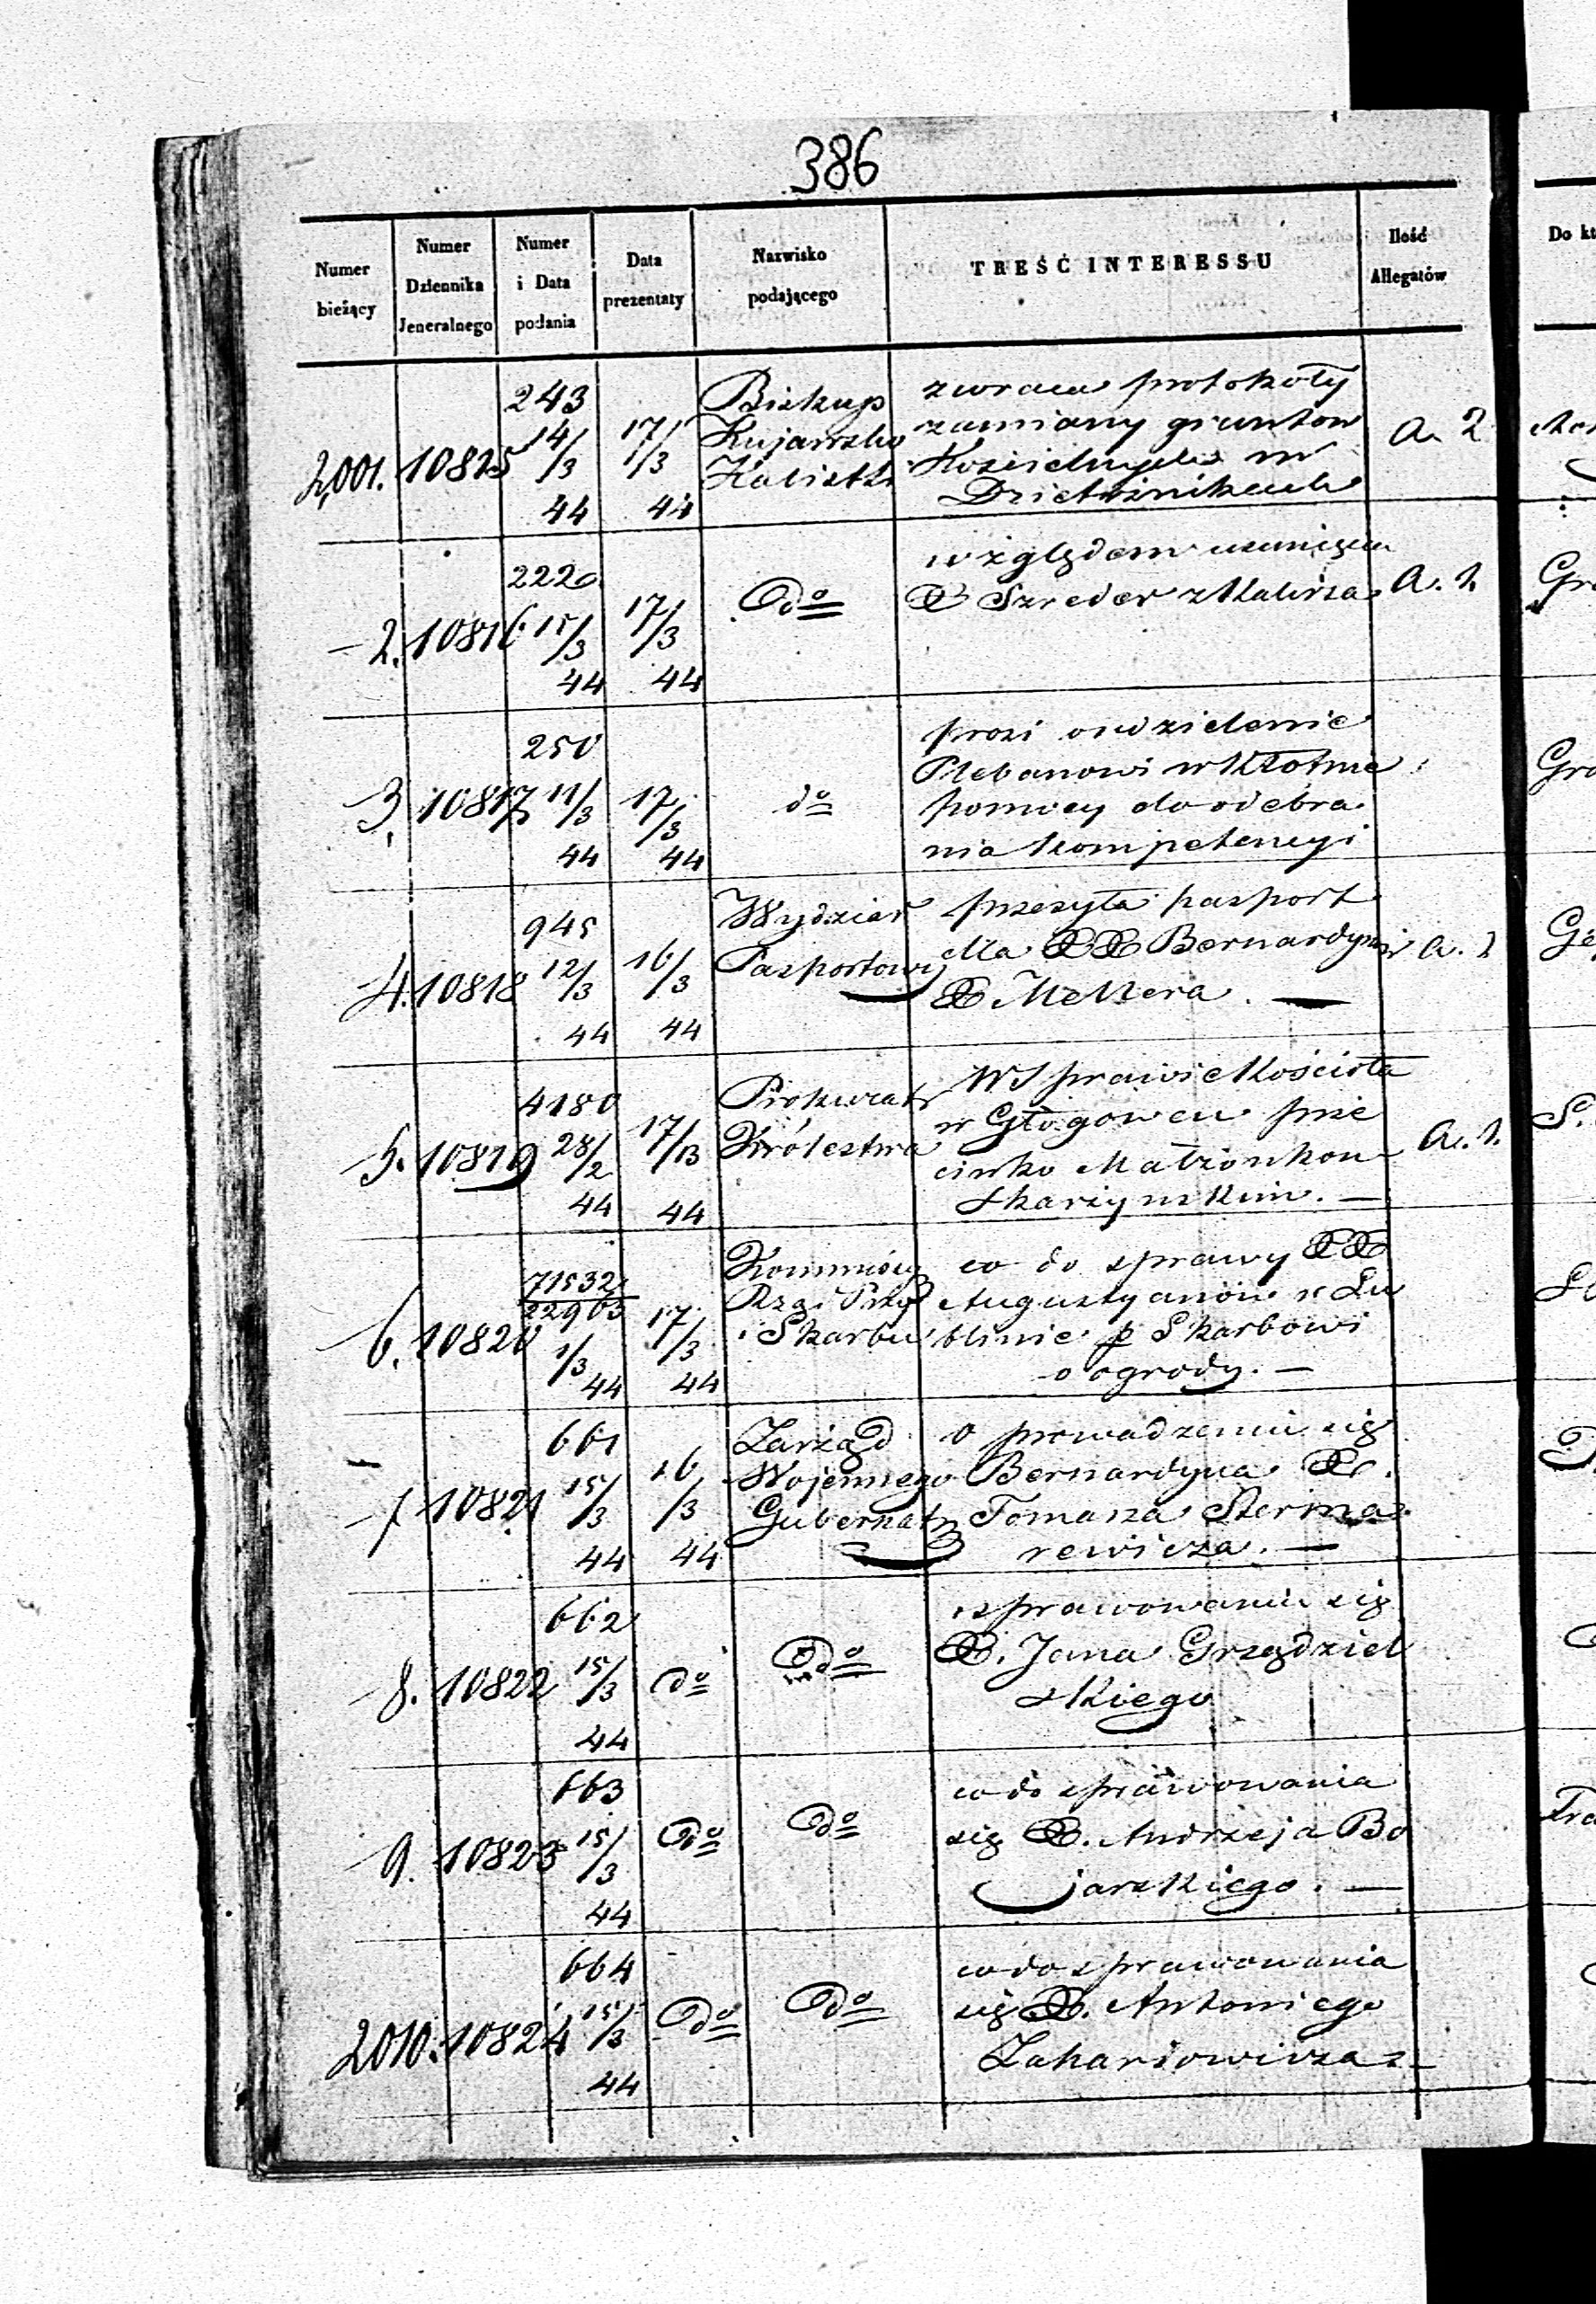 386
Numer bieżący
Numer Dziennika Jeneralnego
Numer i Data podania
Data prezentaty
Nazwisko podającego
TREŚĆ INTERESSU
Ilość Allegatów
Do kt
2,001. 10815 243 14/3 44 17/3 44
Biskup
Kujawsko
Kalisk.
zwraca protokoły
zamiany gruntow
Kościelnych w
a. 2
2. 10816 2220 15/3 44 17/3 44
do
względem usunięcia
X Szreder z Kalisza
a. 1.
Gra
3. 10817 250 11/3 44 17/3 44
do
prosi o udzielenie
Plebanowi w Kłotnie
pomocy do odebra
nia kompetencyi
Gra
4. 10818 945 12/3 44 16/3 44
Wydział
Pasportowy
przesyła pasport
dla XX Bernardynów
X Mellera. —
a. 1
5. 10819 4180 28/2 44 17/3 44
Prokurator
Królestwa
W Sprawie Kościoła
w Głogowcu prze
ciwko Małżonkom
Skarzynskim. —
a. 1.
6. 10820 71532/22963 1/3 44 17/3 44
Kommissya
Rzą. Przy.
i Skarbu
co do sprawy XX
Augustyanów w Lu
blinie p Skarbowi
o ogrody. —
7. 10821 661 15/3 44 16/3 44
Zarząd
Wojennego
Gubernat.
o prowadzeniu się
Bernardyna X.
Tomasza
rewicza. —
8. 10822 662 15/3 44 do
do
sprawowaniu się
X. Jana Grządziel
skiego
9. 10823 663 15/3 44 do
do
co do sprawowania
się X. Andrzeja Bo
jarskiego. —
Fra
2010. 10824 664 15/3 44 do
do
co do sprawowania
się X. Antoniego
Zakarżowicza —